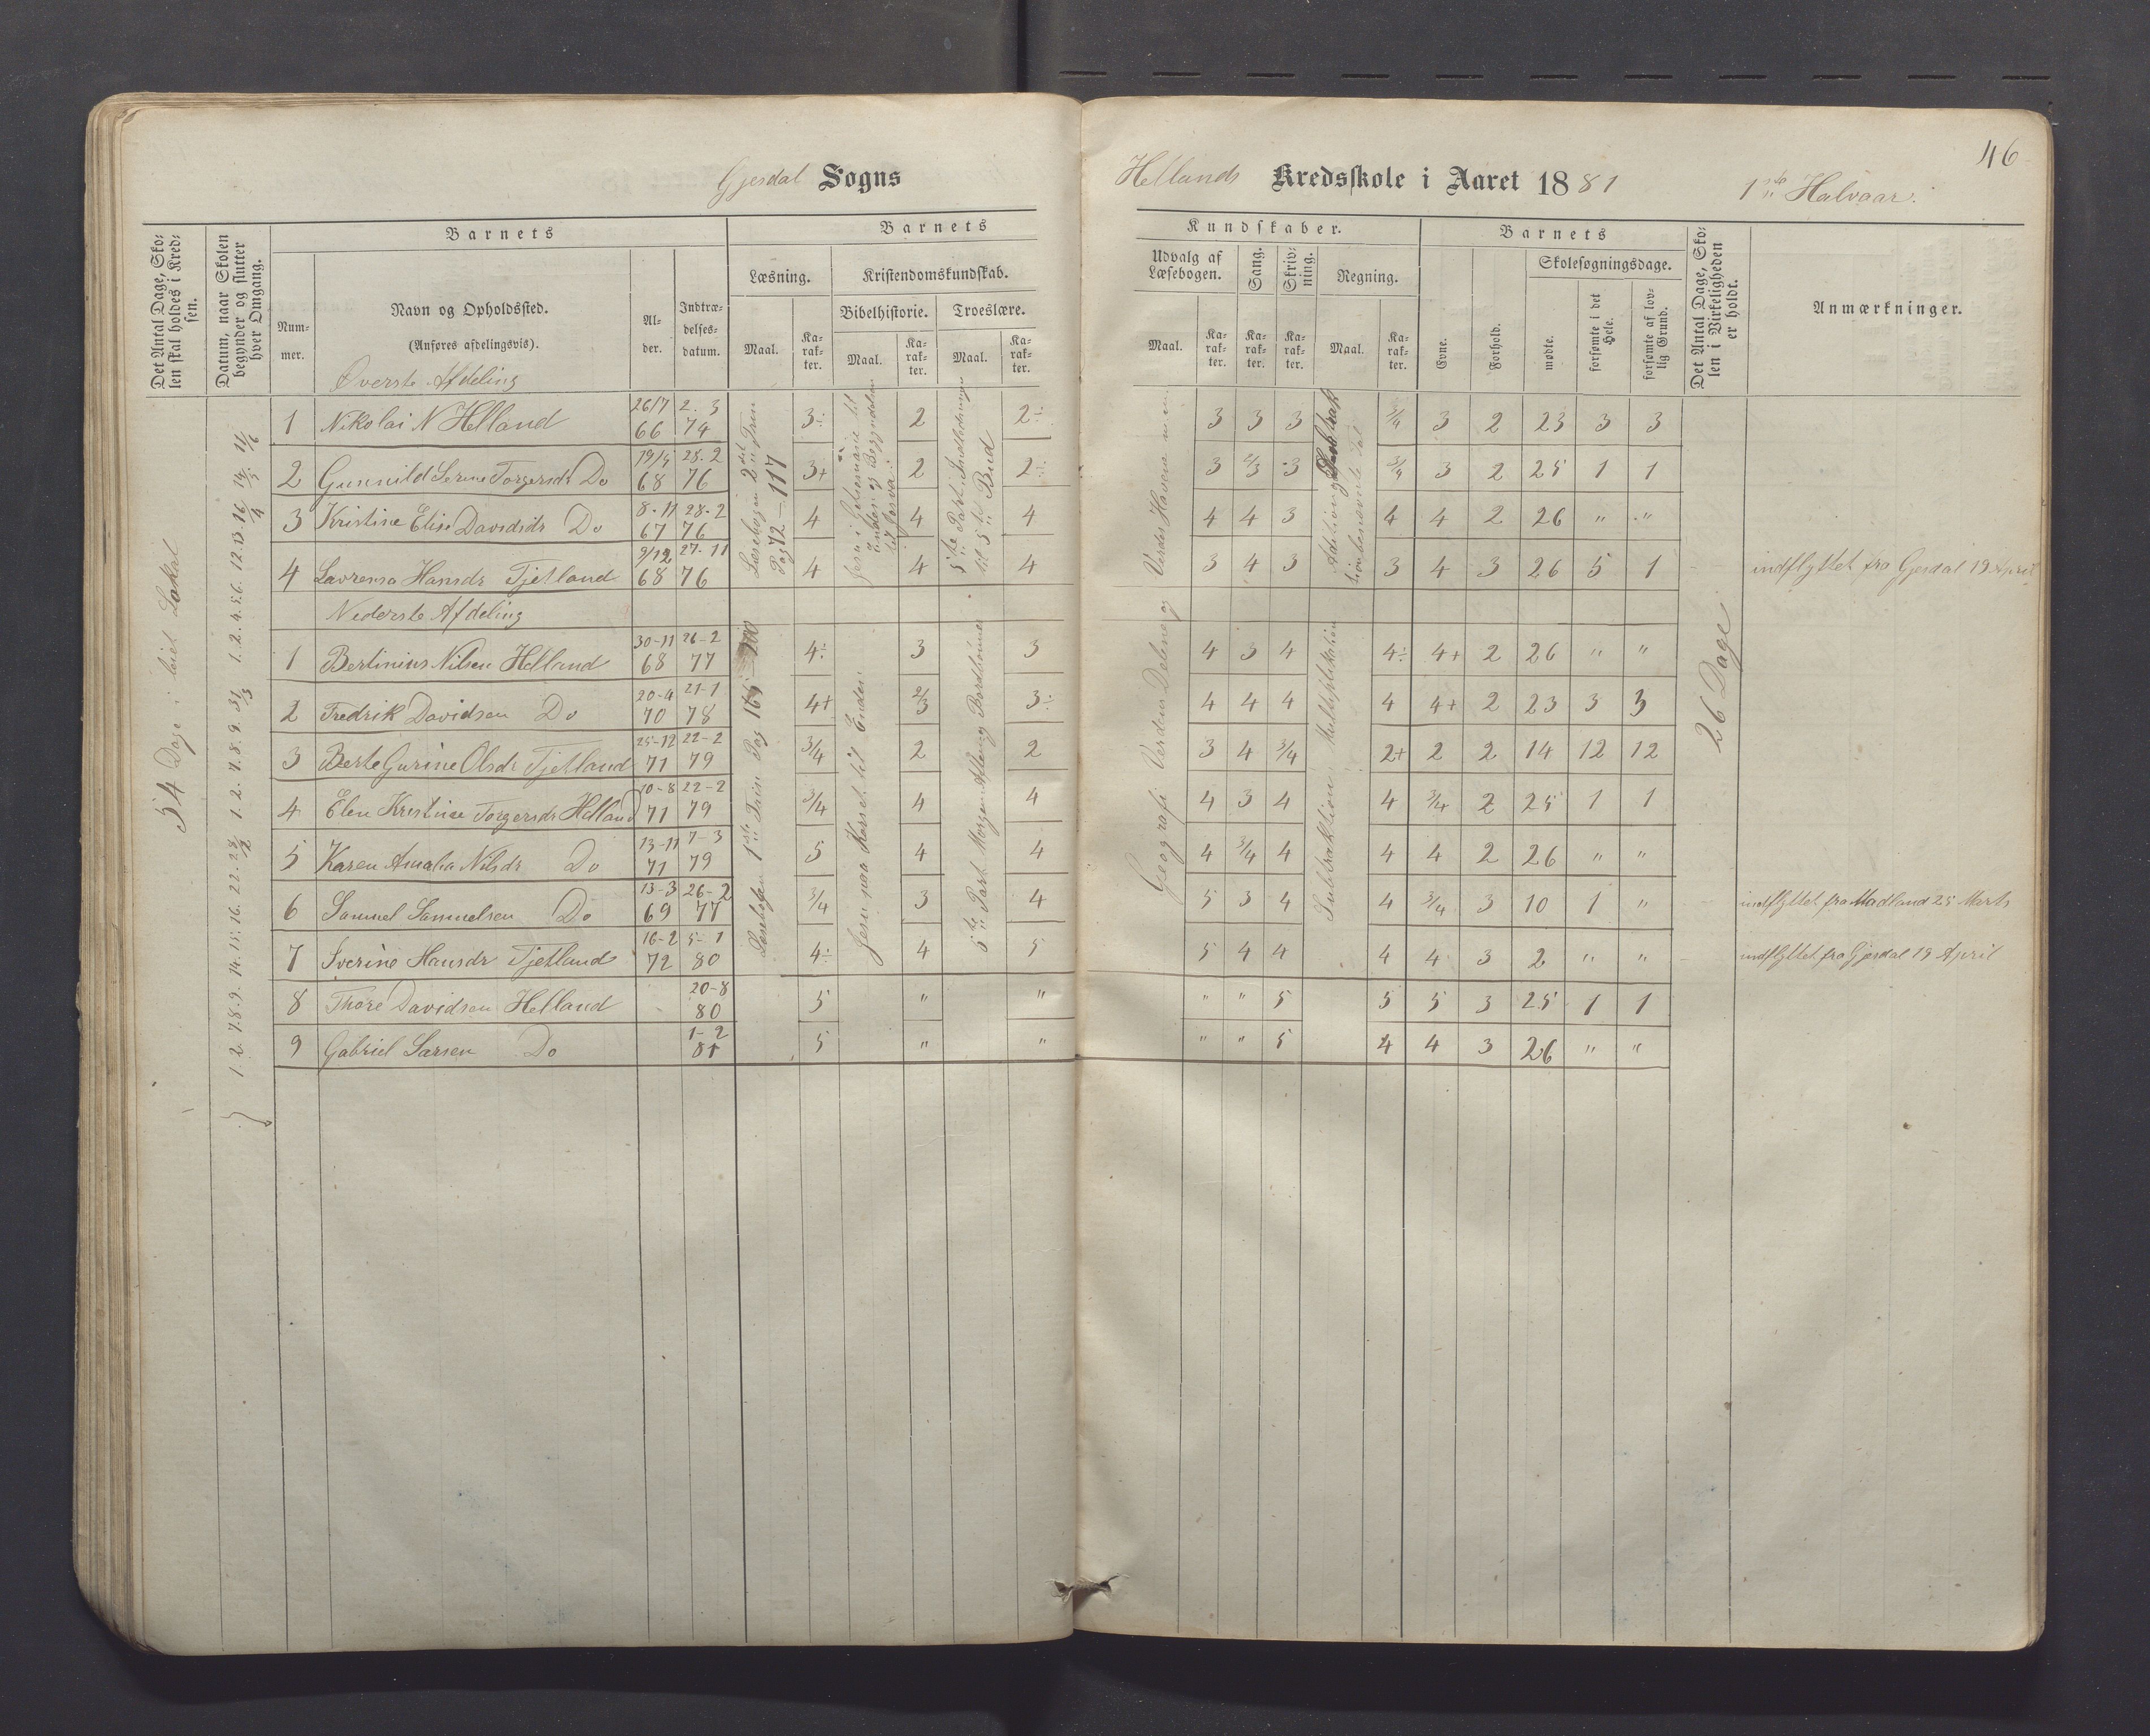 46
Gjesdal Sogns Hellands Kredsskole i Aaret 1881 1ste Halvaar.
Det Antal Dage, Skolen skal holdes i Kredsen.
Datum, naar Skolen begynder og slutter hver Omgang.
Barnets
Nummer.
Navn og Opholdssted.
(Anføres afdelingsvis).
Alder.
Indtrædelsesdatum.
Barnets Kundskaber.
Læsning.
Maal. Karakter.
Kristendomskundskab.
Bibelhistorie. Troeslære.
Maal. Karakter. Maal. Karakter.
Udvalg af Læsebogen.
Maal. Karakter.
Sang. Karakter.
Skrivning. Karakter.
Regning.
Maal. Karakter.
Barnets
Evne. Forhold.
Skolesøgningsdage.
mødte. forsømte i det Hele. forsømte af lovlig Grund.
Det Antal Dage, Skolen i Virkeligheden er holdt.
Anmærkninger.
54 Dage i leiet Lokal
1. 2. 7. 8. 9. 14. 15. 16. 22. 28/2 1. 2. 7. 8. 9. 31/3 1. 2. 4. 5. 6. 12. 13. 16/4 14/5 11/6
Øverste Afdeling
1 Nikolai N Helland 26/7 66 2. 3 74 3÷ 2 2÷ 3 3 3 3/4 3 2 23 3 3
2 Gunnild Serine Torgersdr Do 19/5 68 28. 2 76 3+ 2 2÷ 3 2/3 3 3/4 3 2 25 1 1
3 Kristine Elise Davidsdr Do 8-11 67 28-2 76 4 4 4 4 4 3 4 4 2 26 " "
4 Lavrensa Hansdr Tjetland 9/12 68 27-11 76 4 4 4 3 4 3 3 4 3 26 5 1 indflyttet fra Gjesdal 19 April
Læsebogen 2det Trin Pag 72-117
Jesu i Getsemane til Enden og Begyndelsen til Josva
5te Part. Indledningen til 5te Bud
Geografi Verdens Delene og Verdens Havene
Nederste Afdeling
1 Bertinius Nilsen Helland 30-11 68 26-2 77 4÷ 3 3 4 3 4 4÷ 4+ 2 26 " "
2 Fredrik Davidsen Do 20-4 70 21-1 78 4+ 2/3 3÷ 4 4 4 4 4+ 2 23 3 3
3 Berte Gurine Olsdr Tjetland 25-12 71 22-2 79 3/4 2 2 3 4 3/4 2+ 2 2 14 12 12
4 Elen Kristine Torgersdr Helland 10-8 71 22-2 79 3/4 4 4 4 3 4 4 3/4 2 25 1 1
5 Karen Amalia Nilsdr Do 13-11 71 7-3 79 5 4 4 4 3/4 4 4 4 2 26 " "
6 Samuel Samuelsen Do 13-3 69 26-2 77 3/4 3 4 5 3 4 4 3/4 3 10 1 " indflyttet fra Madland 25 Marts
7 Iverine Hansdr Tjetland 16-2 72 5-1 80 4÷ 4 5 5 4 4 4 4 3 2 " " indflyttet fra Gjesdal 19 April
8 Thore Davidsen Helland 20-8 80 5 " " " " 5 5 5 3 25 1 1
9 Gabriel Larsen Do 1-2 81 5 " " " " 5 4 4 3 26 " "
Læsebogen 1ste Trin Pag 169-200
Jesu paa Korset til Enden
5te Part Morgen Aften og Bordbønner
Subtraktion Multiplikation
26 Dage